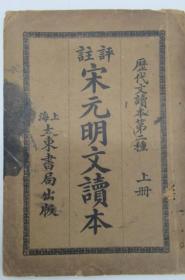 歷代文讀本第二種
上冊
評註
宋元明文讀本
上海
大東書局出版